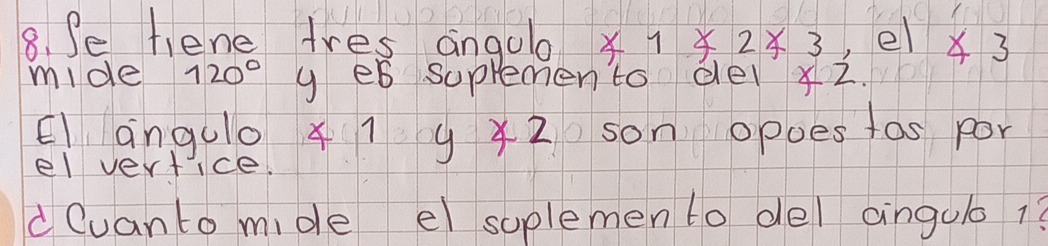 8. Se tiene tres ángulo ∡ 1 ∡ 2 ∡ 3, el ∡ 3
mide 120° y es suplemento del ∡ 2.
El ángulo ∡ 1 y ∡ 2 son opoestas por
el vertice.
¿Cuanto mide el suplemento del angulo 1?